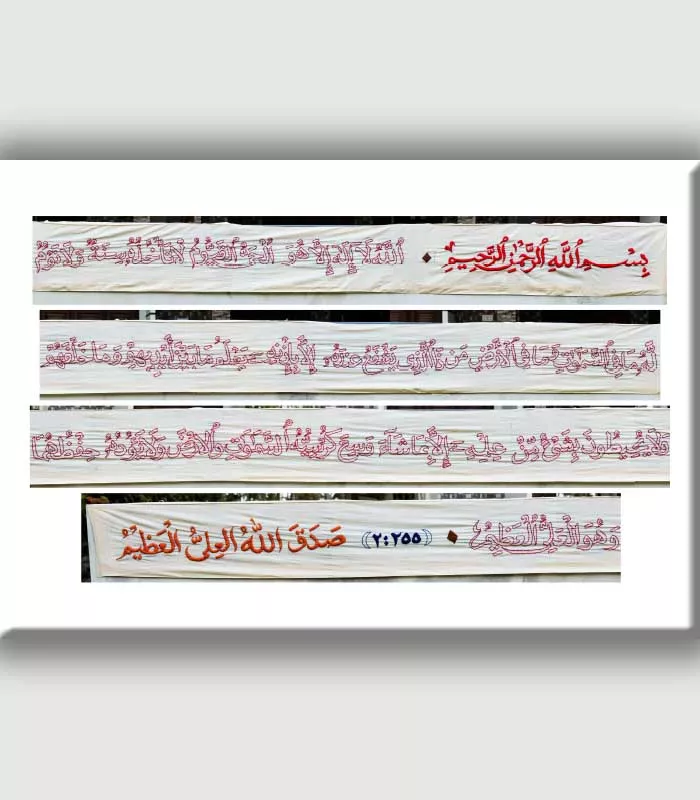 بِسْمِ ٱللَّهِ ٱلرَّحْمَٰنِ ٱلرَّحِيمِ ٱللَّهُ لَا إِلَٰهَ إِلَّا هُوَ ٱلْحَىُّ ٱلْقَيُّومُ لَا تَأْخُذُهُۥ سِنَةٌ وَلَا نَوْمٌ
لَّهُۥ مَا فِى ٱلسَّمَٰوَٰتِ وَمَا فِى ٱلْأَرْضِ مَن ذَا ٱلَّذِى يَشْفَعُ عِندَهُۥ إِلَّا بِإِذْنِهِۦ يَعْلَمُ مَا بَيْنَ أَيْدِيهِمْ وَمَا خَلْفَهُمْ
وَلَا يُحِيطُونَ بِشَىْءٍ مِّنْ عِلْمِهِۦ إِلَّا بِمَا شَآءَ وَسِعَ كُرْسِيُّهُ ٱلسَّمَٰوَٰتِ وَٱلْأَرْضَ وَلَا يَـُٔودُهُۥ حِفْظُهُمَا
وَهُوَ ٱلْعَلِىُّ ٱلْعَظِيمُ (٢:٢٥٥) صَدَقَ اللهُ العِلىُّ العَظِيمُ